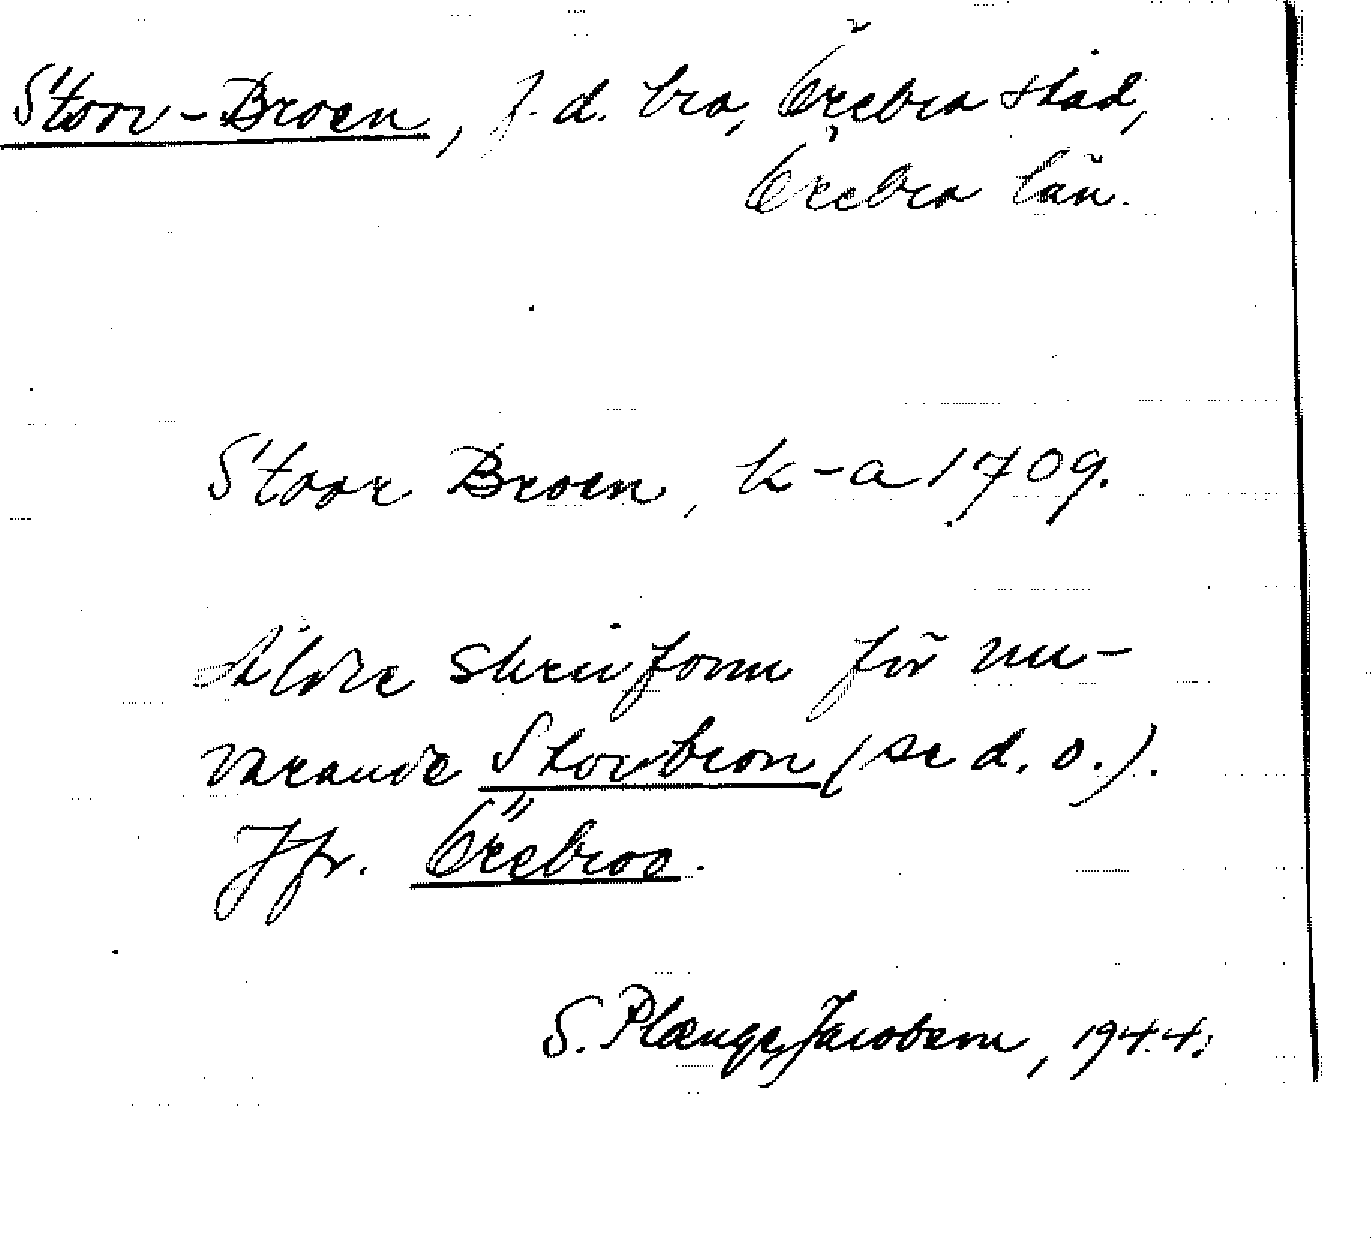 Stoor-Broen, f.d. bro, Örebro stad,
Örebro län.
Stoor Broen, k-a 1709.
Äldre skrivform för nu-
varande Storbron (se d. o.).
Jfr. Örebroo.
S. Plænge Jacobson, 1944.